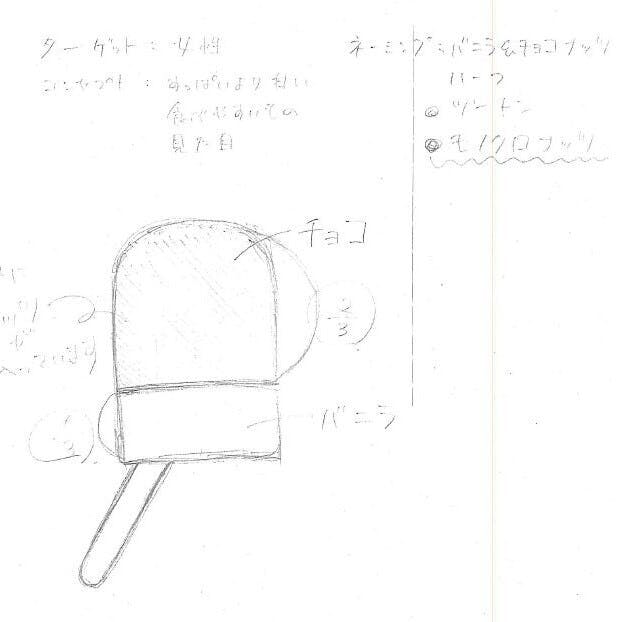 ターゲット：女性
コンセプト：すっぱいより甘い
食べやすいての
見た目
ネーミング：バニラ&チョコナッツ
ハーフ
ツートン
モノクロナッツ
チョコ
ナッツ
が
入っています
2/3
バニラ
1/3